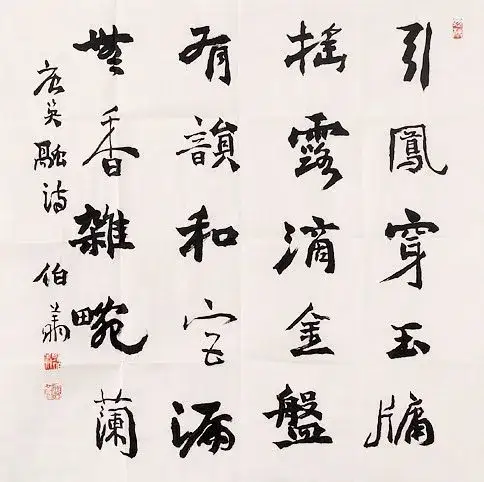 引鳳穿玉牖
搖露滴金盤
有韻和宮漏
無香雜畹蘭
唐吳融詩 伯蕭